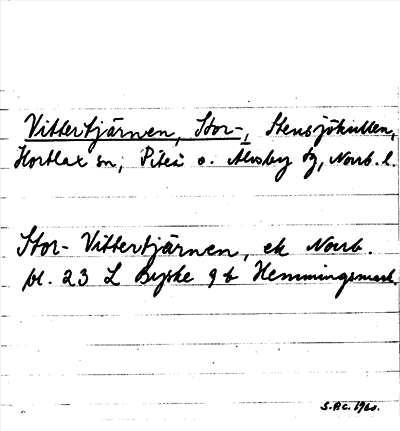 Vittertjärnen, Stor-, Stensjökullen,
Hortlax sn, Piteå o. Älvsby tg, Norrb. l.
Stor- Vittertjärnen, ek Norrb.
bl. 23 L Byske 9 b Hemmingsmark.
S.P.C. 1960.